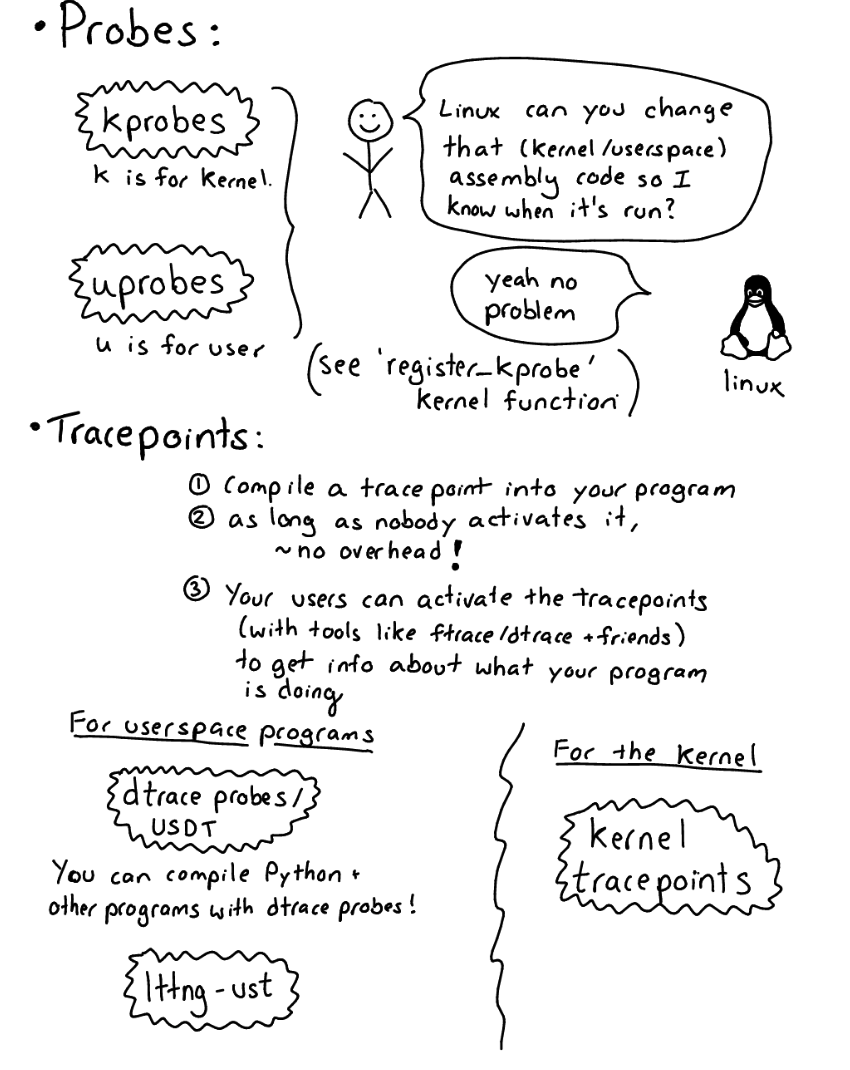 • Probes:
kprobes
k is for kernel.
uprobes
u is for user
Linux can you change
that (kernel/userspace)
assembly code so I
know when it's run?
yeah no
problem
linux
(see 'register_kprobe'
kernel function)
• Tracepoints:
① Compile a tracepoint into your program
② as long as nobody activates it,
~no overhead!
③ Your users can activate the tracepoints
(with tools like ftrace/dtrace + friends)
to get info about what your program
is doing
For userspace programs
dtrace probes/
USDT
You can compile Python +
other programs with dtrace probes!
lttng-ust
For the kernel
kernel
tracepoints